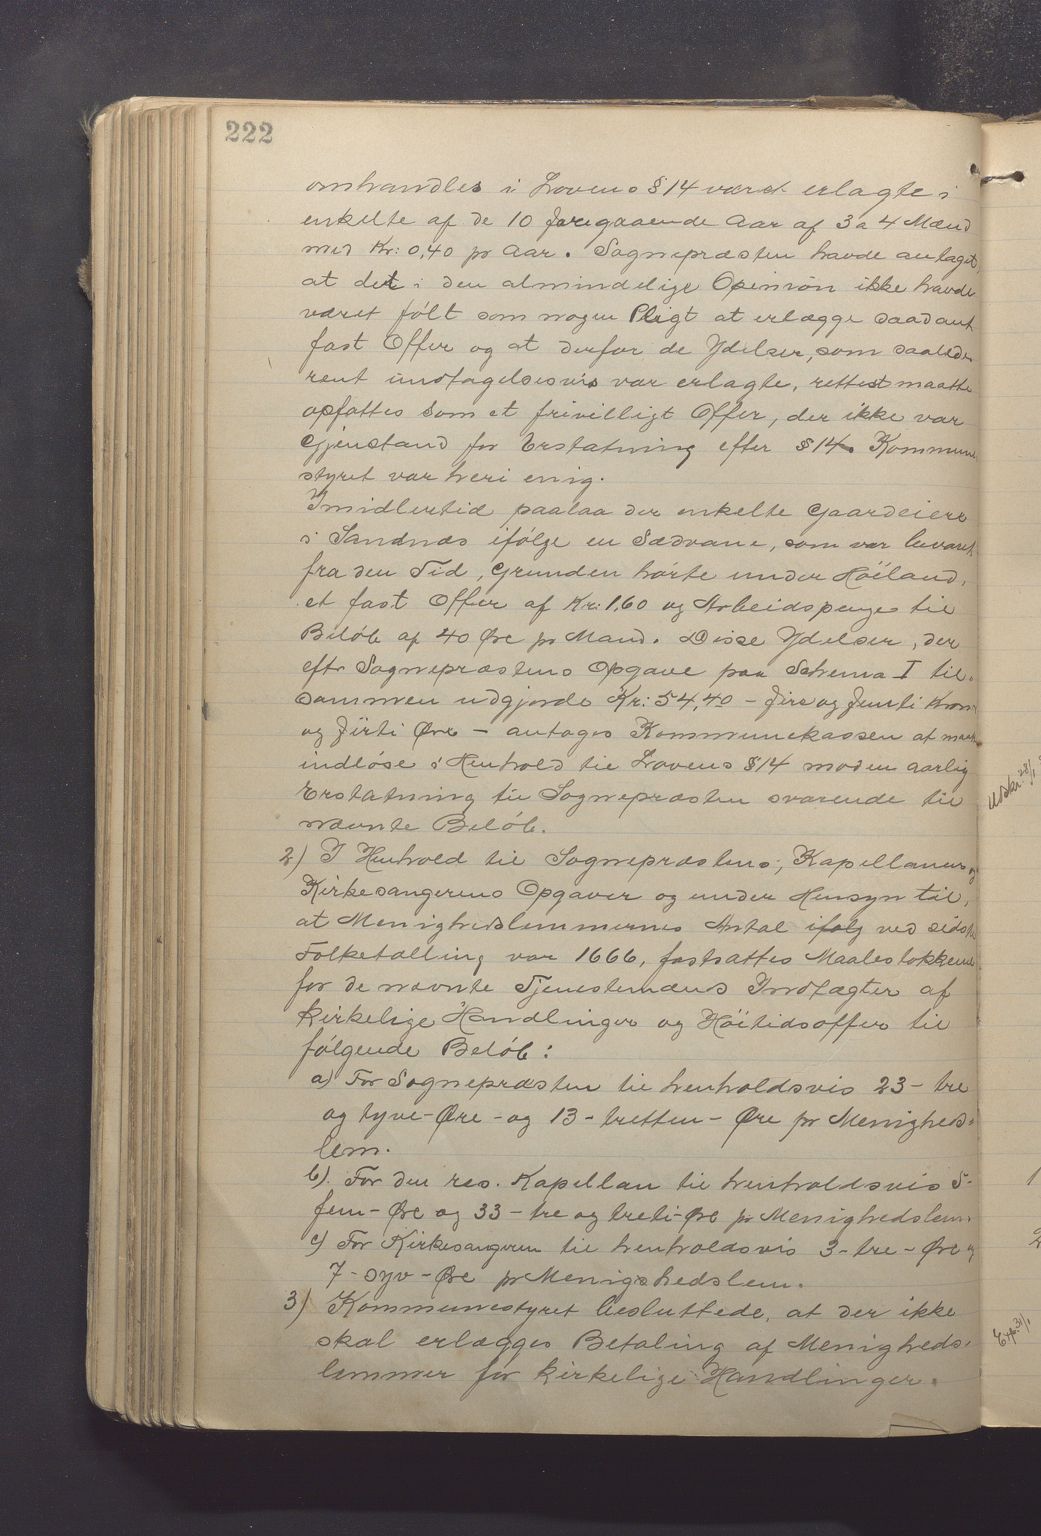 222
omhandles i Lovens § 14 været erlagte i
enkelte af de 10 foregaaende Aar af 3 a 4 Mænd
med Kr: 0,40 pr Aar. Sognepræsten havde antaget,
at det i den almindelige Opinion ikke havde
været følt som nogen Pligt at erlægge saadant
fast Offer og at derfor de Ydelser, som saaledes
rent undtagelsesvis var erlagte, rettest maatte
opfattes som et frivilligt Offer, der ikke var
Gjenstand for Erstatning efter § 14. Kommune
styret var heri enig.
Imidlertid paalaa der enkelte Gaardeiere
i Sandnæs ifølge en Sædvane, som var bevaret
fra den Tid, Grunden hørte under Høiland,
et fast Offer af Kr: 1,60 og Arbeidspenge til
Beløb af 40 Øre pr Mand. Disse Ydelser, der
eftr Sognepræstens Opgave paa Schema I til-
sammen udgjorde Kr: 54,40 – fireogfemti Kron
og firti Øre – antages Kommunekassen at maatte
indløse i Henhold til Lovens § 14 mod en aarlig
Erstatning til Sognepræsten svarende til
nævnte Beløb.
2) I Henhold til Sognepræstens, Kapellanens og
Kirkesangerens Opgaver og under Hensyn til,
at Menighedslemmernes Antal ifølg ved sidste
Folketælling var 1666, fastsattes Maalestokkene
for de nævnte Tjenestemænds Indtægter af
kirkelige Handlinger og Høitidsoffer til
følgende Beløb:
a) For Sognepræsten til henholdsvis 23 – tre
og tyve – Øre – og 13 – tretten – Øre pr Menigheds-
lem.
b). For den res. Kapellan til henholdsvis 5-
fem – Øre og 33 – tre og treti – Øre pr Menighedslem.
c) For Kirkesangeren til henholdsvis 3 – tre – Øre og
7 – syv – Øre pr Menighedslem.
3) Kommunestyret besluttede, at der ikke
skal erlægges Betaling af Menigheds-
lemmer for kirkelige Handlinger.
Udskr. 28/1
Exp. 31/1